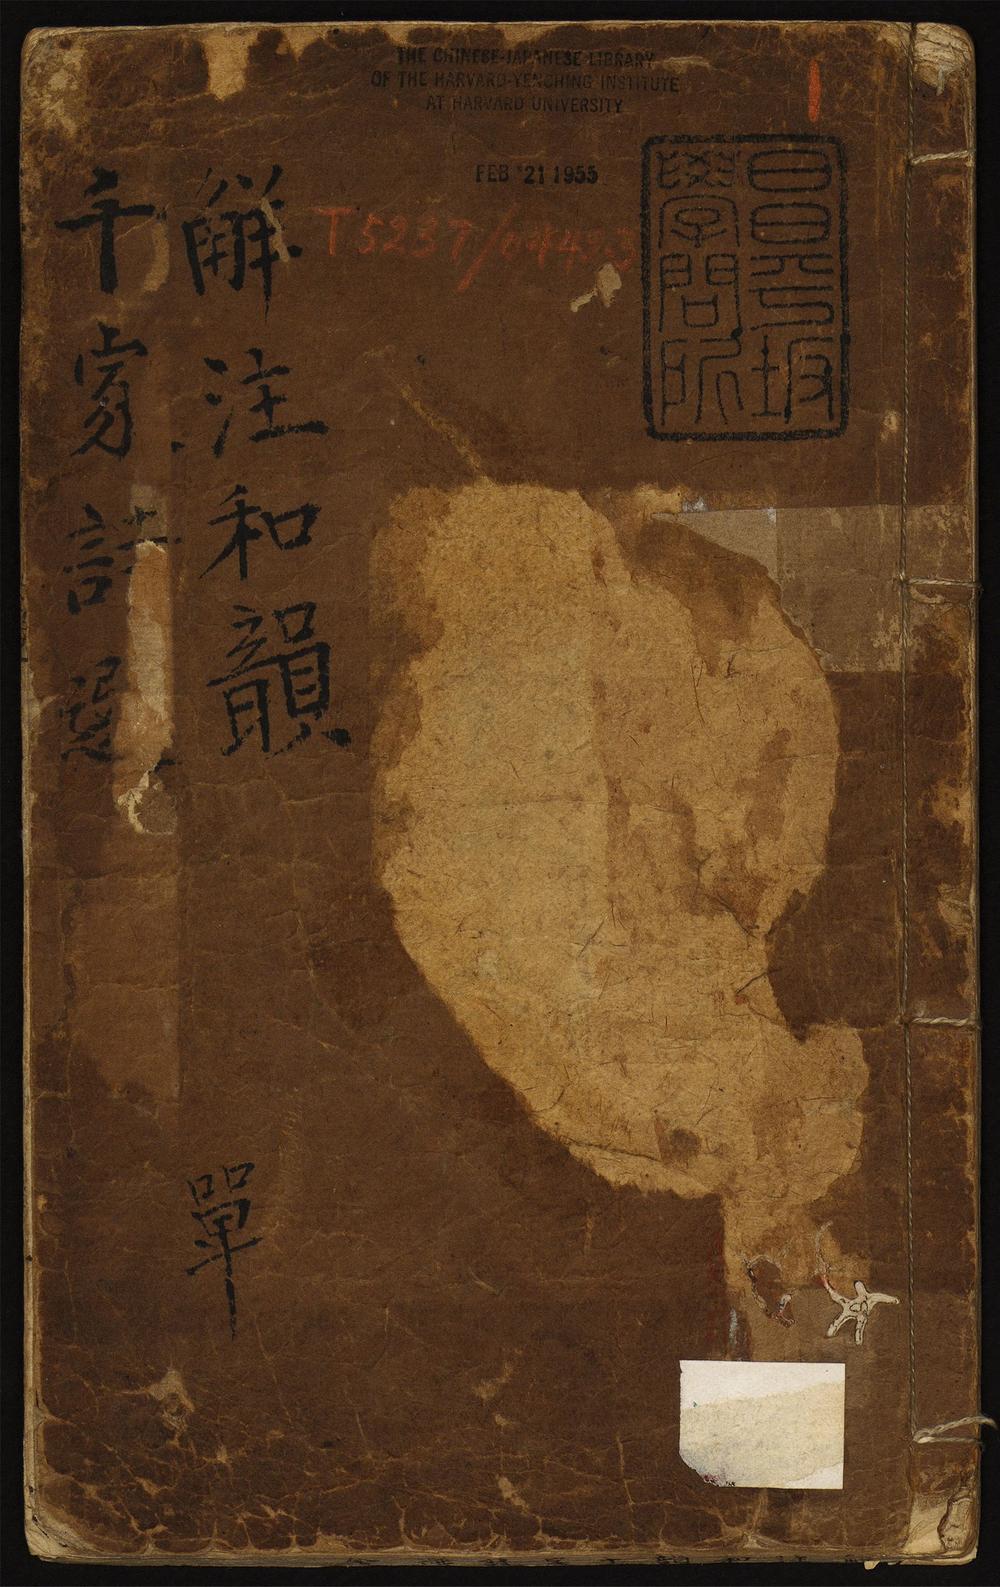 THE CHINESE-JAPANESE LIBRARY
OF THE HARVARD-YENCHING INSTITUTE
AT HARVARD UNIVERSITY
FEB 21 1955
昌平坂
學問所
觧注和韻
千家詩選
單